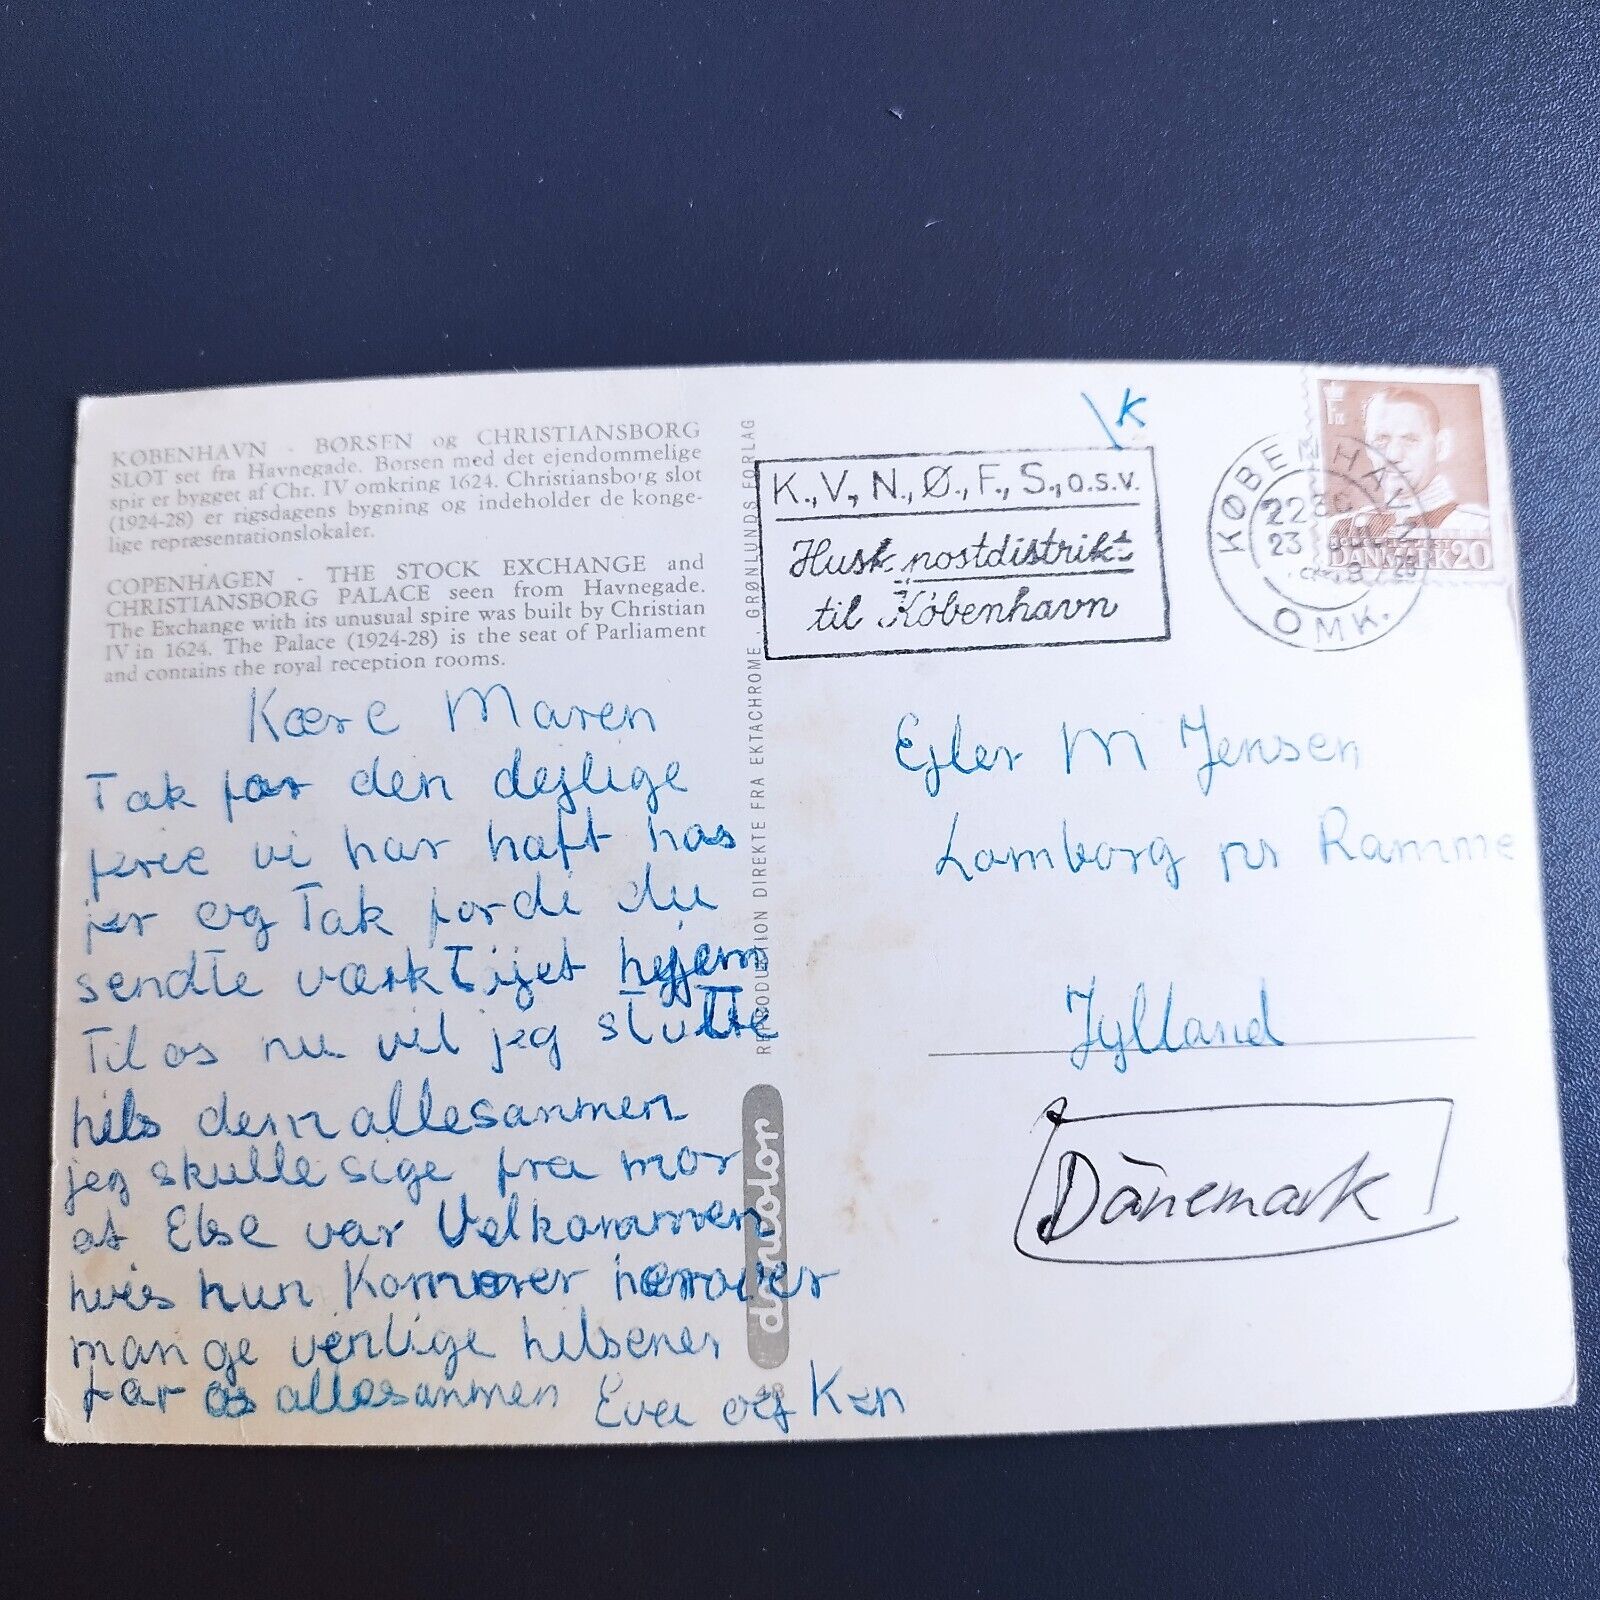 KØBENHAVN - BØRSEN og CHRISTIANSBORG
SLOT set fra Havnegade. Børsen med det ejendommelige
spir er bygget af Chr. IV omkring 1624. Christiansborg slot
(1924-28) er rigsdagens bygning og indeholder de konge-
lige repræsentationslokaler.
COPENHAGEN - THE STOCK EXCHANGE and
CHRISTIANSBORG PALACE seen from Havnegade.
The Exchange with its unusual spire was built by Christian
IV in 1624. The Palace (1924-28) is the seat of Parliament
and contains the royal reception rooms.
Kære Maren
Tak for den dejlige
ferie vi har haft hos
jer og Tak fordi du
sendte værktijet hjem
Til os nu vil jeg slutte
hils dem allesammen
jeg skulle sige fra mor
at Else var Velkommen
hvis hun Kommer herover
mange venlige hilsener
far os allesammen Eva og Ken
REPRODUKTION DIREKTE FRA EKTACHROME. GRØNLUNDS FORLAG
danolor
K
K., V., N., Ø., F., S., o.s.v.
Husk postdistrikt
til København
KØBENHAVN
OMK.
DANMARK 20
Ejler M Jensen
Lomborg pr Ramme
Jylland
Dänemark